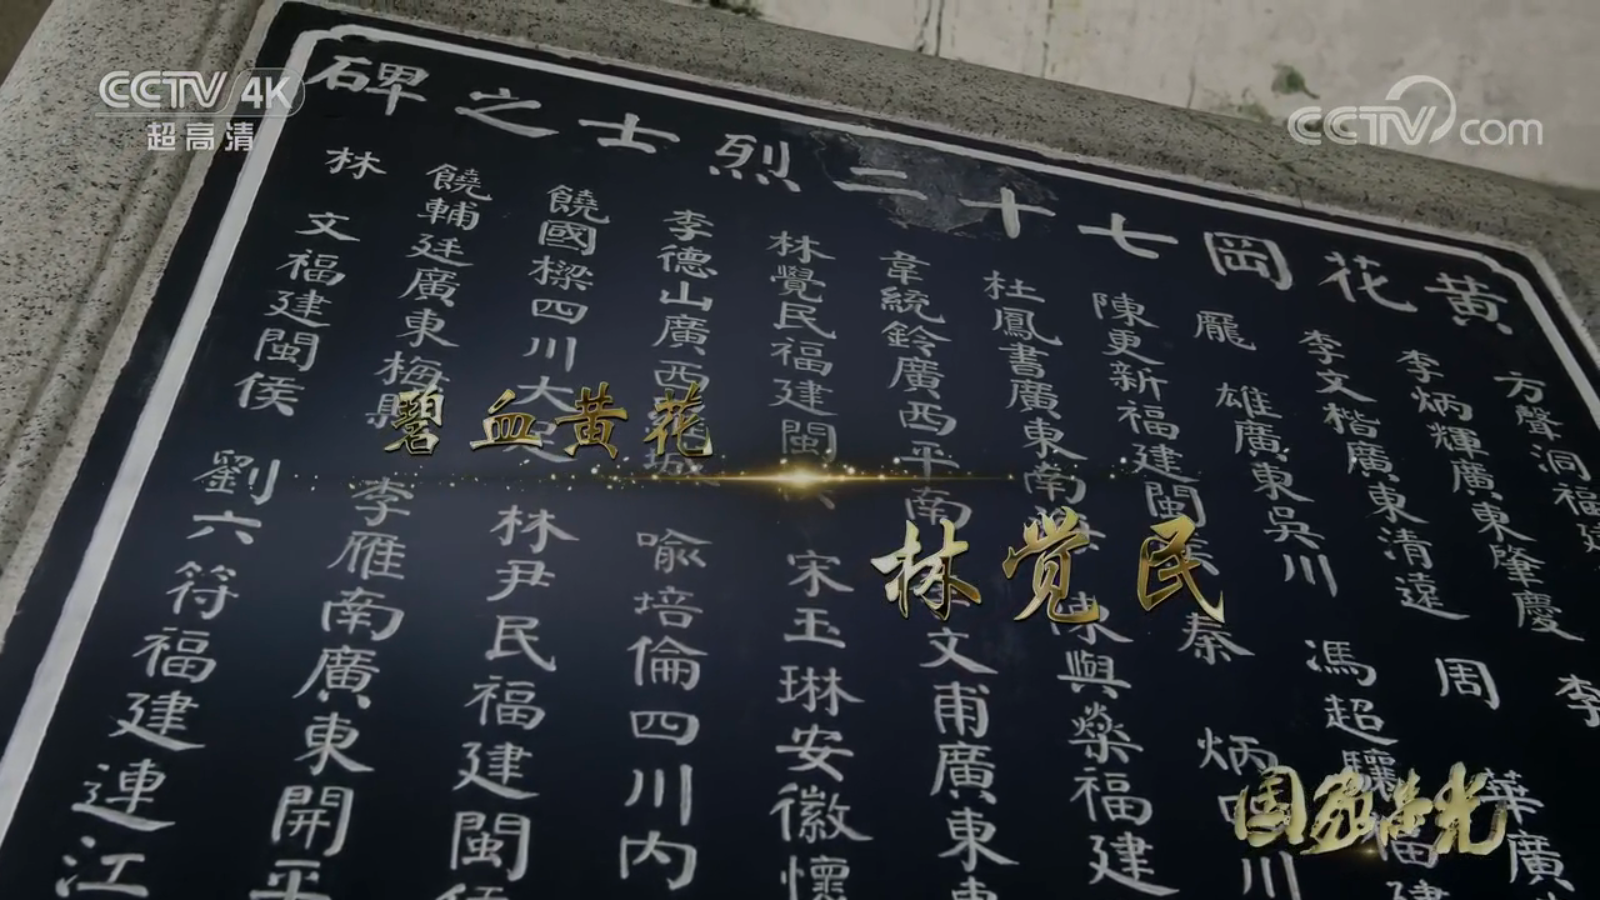 CCTV 4K
超高清
CCTV.com
黄花岡七十二烈士之碑
方聲洞福建
李炳輝廣東肇慶
李文楷廣東清遠
龎雄廣東吳川
陳更新福建閩
杜鳳書廣東南
韋統鈴廣西平南
林覺民福建閩
李德山廣西
饒國樑四川大足
饒輔廷廣東梅縣
林文福建閩侯
李
周華廣
馮超驤福建
秦炳四川
陳與燊福建
文甫廣東
宋玉琳安徽懷
喻培倫四川內
林尹民福建閩
李雁南廣東開平
劉六符福建連江
碧血黄花
林觉民
国家荣光